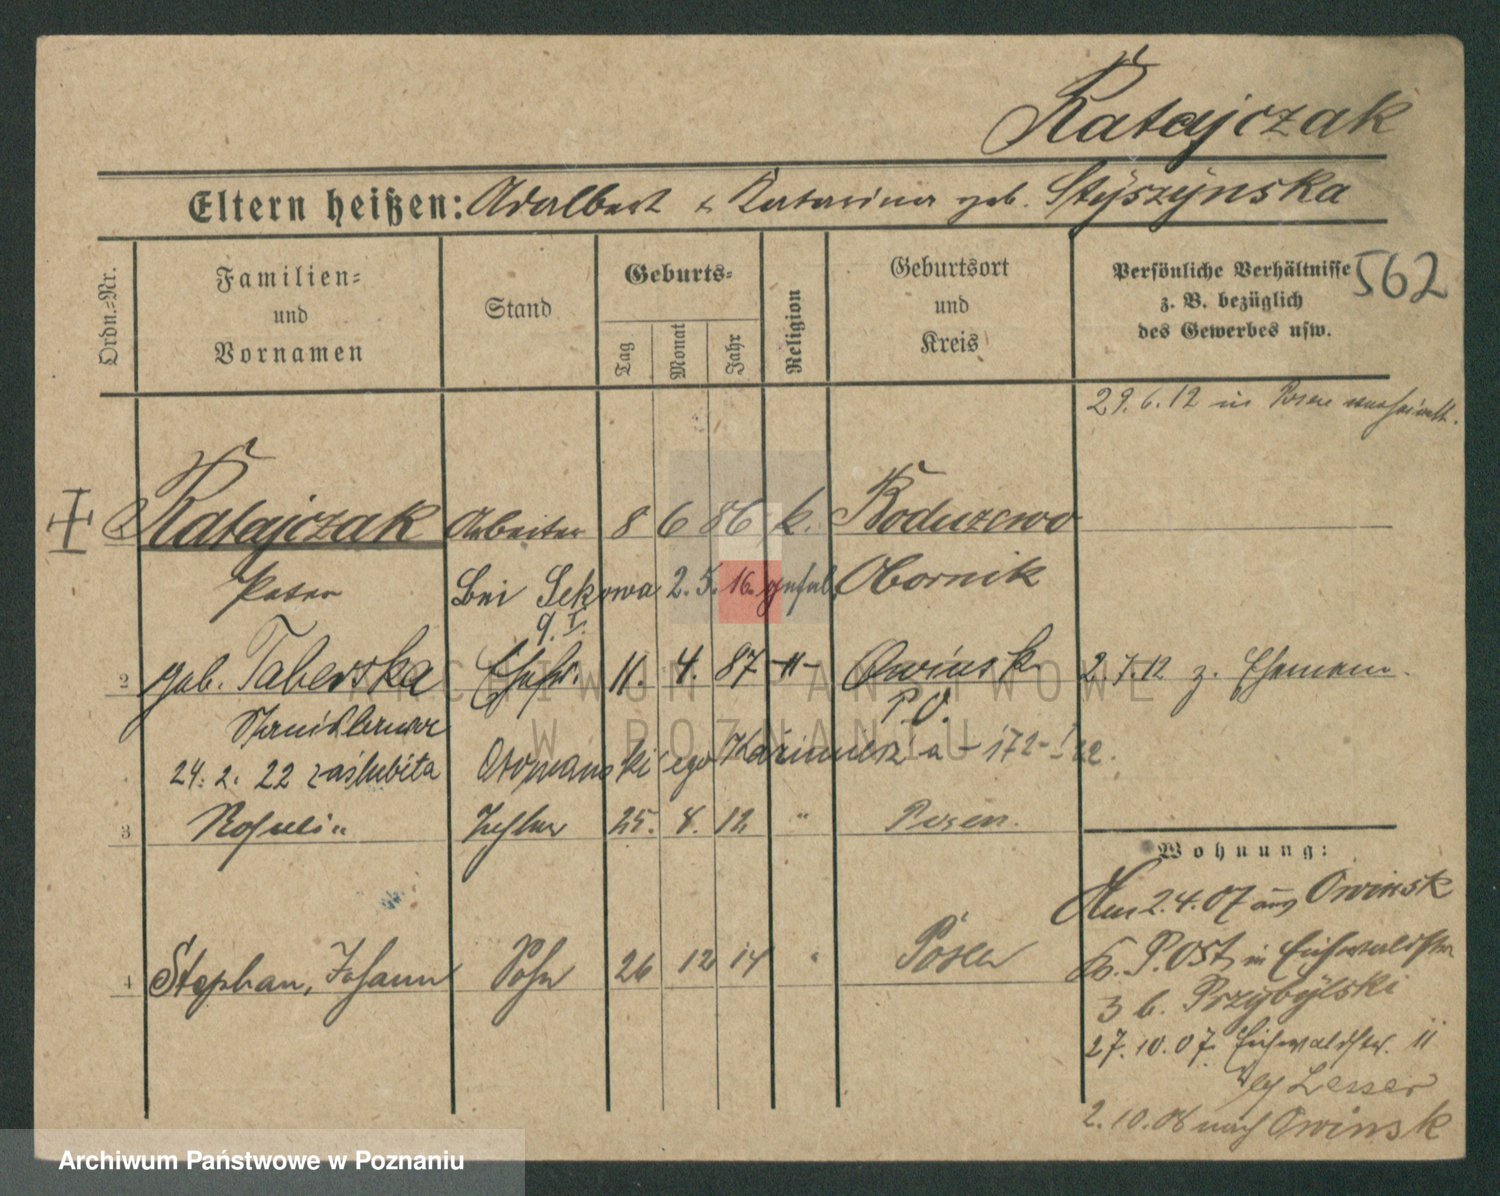 Ratajczak
Eltern heißen: Adalbert & Katarina geb. Styszynska
Ordn.-Nr.
Familien- und Vornamen
Stand
Geburts-
Tag
Monat
Jahr
Religion
Geburtsort und Kreis
Persönliche Verhältnisse z. B. bezüglich des Gewerbes usw.
562
29.6.12 in Posen verheirath.
Ratajczak Arbeiter 8 6 86 k. Boduszewo
Peter Bei Sekowa 2. 5. 16. gefal. Obornik
9. I.
2 geb. Taberska Ehefr. 11. 4. 87 -"- Owinsk 2.7.12 z. Ehemann.
Stanislawa P.O.
24. 2. 22 zaślubiła Kaźimierz'a - 172-I 22.
3 Tochter 25. 8. 12 " Posen.
Wohnung:
Am 2.4.07 aus Owinsk
Kr. P. Ost, in Eichwaldstr
4 Stephan, Johann Sohn 26 12 14 " Posen
3 b. Przybylski
27.10.07 Eichwaldstr. 11
bei Lesser
2.10.08 nach Owinsk
ARCHIWUM PAŃSTWOWE
W POZNANIU
Archiwum Państwowe w Poznaniu